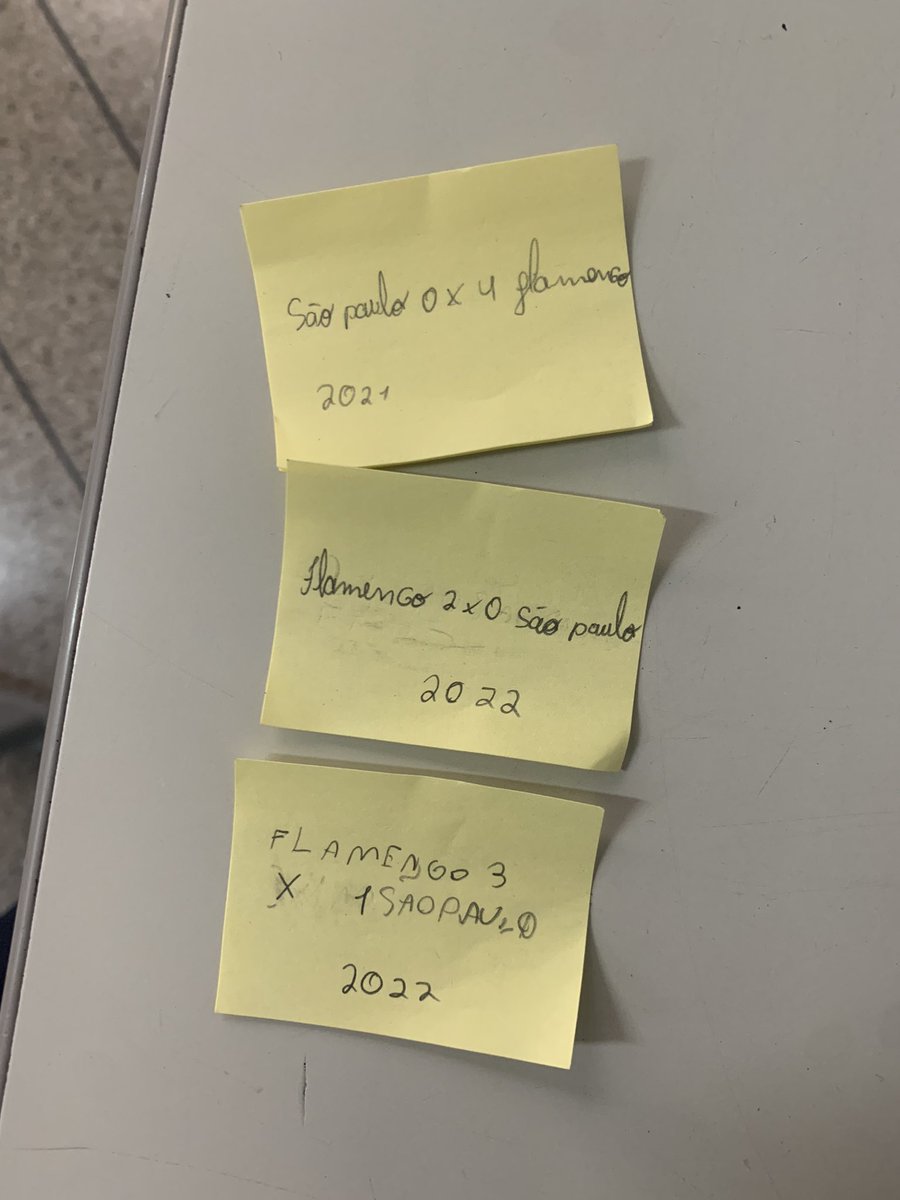 São paulo 0 x 4 flamengo
2021
Flamengo 2 x 0 São paulo
2022
FLAMENGO 3
X 1 SAO PAULO
2022